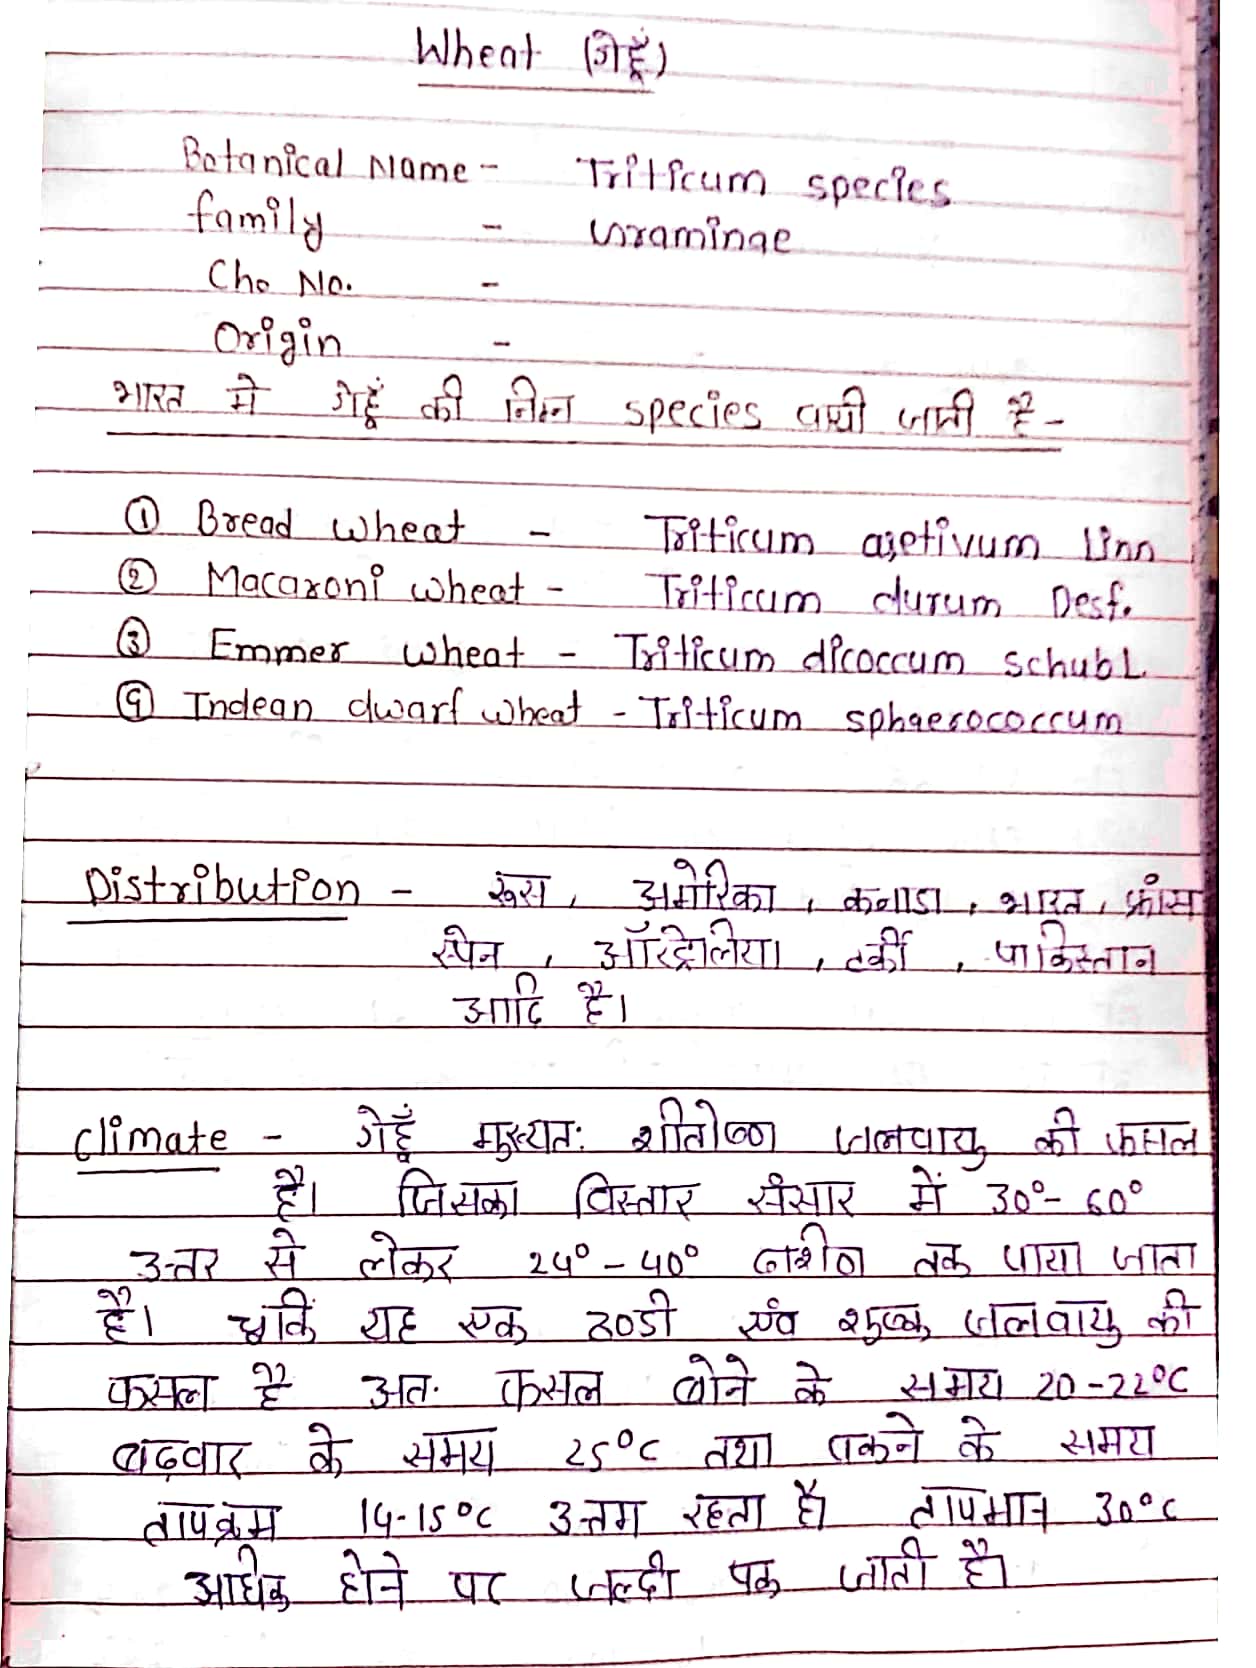 Wheat (गेहूँ)
Botanical Name - Triticum species
family - Graminae
Cho No. -
Origin -
भारत मे गेहूँ की निम्न species पायी जाती है -
① Bread wheat - Triticum asetivum Linn
② Macaroni wheat - Triticum durum Desf.
③ Emmer wheat - Triticum dicoccum schubL
④ Indean dwarf wheat - Triticum sphaerococcum
Distribution - रूस, अमेरिका, कनाडा, भारत, फ्रांस
स्पेन, ऑस्ट्रेलिया, टर्की, पाकिस्तान
आदि है।
Climate - गेहूँ मुख्यतः शीतोष्ण जलवायु की फसल
है। जिसका विस्तार संसार में 30°- 60°
उत्तर से लेकर 24° - 40° दक्षीण तक पाया जाता
है। चूकिं यह एक ठण्डी एंव शुष्क जलवायु की
फसल है अतः फसल बोने के समय 20-22°C
बढ़वार के समय 25°C तथा पकने के समय
तापक्रम 14-15°C उत्तम रहता है। तापमान 30°C
अधिक होने पर जल्दी पक जाती है।